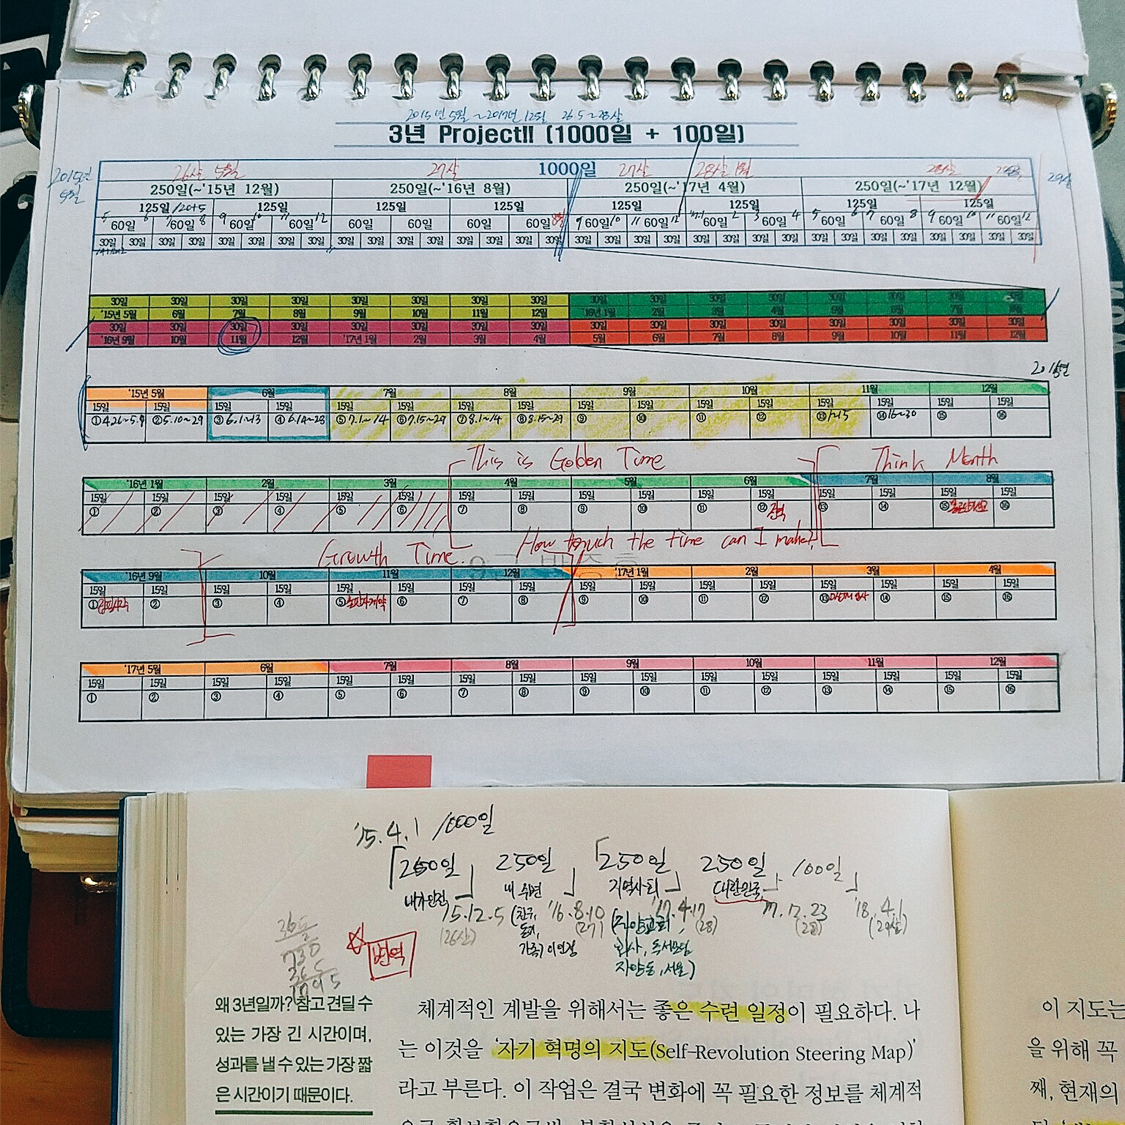 2015년 5월 ~ 2017년 12월 26.5~28살
3년 Project!! (1000일 + 100일)
2015년 5월
26살 5월 27살 1000일 27살 28살 1월 28살 29살
250일(~'15년 12월) 250일(~'16년 8월) 250일(~'17년 4월) 250일(~'17년 12월)
125일 /2015 125일 125일 125일 125일 125일 125일 125일
60일 60일 60일 60일 60일 60일 60일 60일 60일 60일 60일 60일 60일 60일 60일 60일
30일 30일 30일 30일 30일 30일 30일 30일 30일 30일 30일 30일 30일 30일 30일 30일 30일 30일 30일 30일 30일 30일 30일 30일 30일 30일 30일 30일 30일 30일 30일 30일
30일 30일 30일 30일 30일 30일 30일 30일 30일 30일 30일 30일 30일 30일 30일 30일
'15년 5월 6월 7월 8월 9월 10월 11월 12월 '16년 1월 2월 3월 4월 5월 6월 7월 8월
30일 30일 30일 30일 30일 30일 30일 30일 30일 30일 30일 30일 30일 30일 30일 30일
'16년 9월 10월 11월 12월 '17년 1월 2월 3월 4월 5월 6월 7월 8월 9월 10월 11월 12월
2015년
'15년 5월 6월 7월 8월 9월 10월 11월 12월
15일 15일 15일 15일 15일 15일 15일 15일 15일 15일 15일 15일 15일 15일 15일 15일
① 4.26~5.9 ② 5.10~29 ③ 6.1~13 ④ 6.14~28 ⑤ 7.1~14 ⑥ 7.15~29 ⑦ 8.1~14 ⑧ 8.15~29 ⑨ ⑩ ⑪ ⑫ ⑬ 1~15 ⑭ 16~30 ⑮ ⑯
This is Golden Time Think Month
'16년 1월 2월 3월 4월 5월 6월 7월 8월
15일 15일 15일 15일 15일 15일 15일 15일 15일 15일 15일 15일 15일 15일 15일 15일
① ② ③ ④ ⑤ ⑥ ⑦ ⑧ ⑨ ⑩ ⑪ ⑫ ⑬ ⑭ ⑮ ⑯
Growth Time. How much the time can I make?
'16년 9월 10월 11월 12월 '17년 1월 2월 3월 4월
15일 15일 15일 15일 15일 15일 15일 15일 15일 15일 15일 15일 15일 15일 15일 15일
① ② ③ ④ ⑤ ⑥ ⑦ ⑧ ⑨ ⑩ ⑪ ⑫ ⑬ ⑭ ⑮ ⑯
'17년 5월 6월 7월 8월 9월 10월 11월 12월
15일 15일 15일 15일 15일 15일 15일 15일 15일 15일 15일 15일 15일 15일 15일 15일
① ② ③ ④ ⑤ ⑥ ⑦ ⑧ ⑨ ⑩ ⑪ ⑫ ⑬ ⑭ ⑮ ⑯
'15.4.1 1000일
250일 250일 250일 250일 100일
내 주변 지역사회 대한민국
'15.12.5 '16.8.10 '17.4.17 '17.12.23 '18.4.1
(26살) (27) (28) (28) (29살)
번역
왜 3년일까? 참고 견딜 수
있는 가장 긴 시간이며,
성과를 낼 수 있는 가장 짧
은 시간이기 때문이다.
체계적인 계발을 위해서는 좋은 수련 일정이 필요하다. 나
는 이것을 '자기 혁명의 지도(Self-Revolution Steering Map)'
라고 부른다. 이 작업은 결국 변화에 꼭 필요한 정보를 체계적
이 지도는
을 위해 꼭
째, 현재의